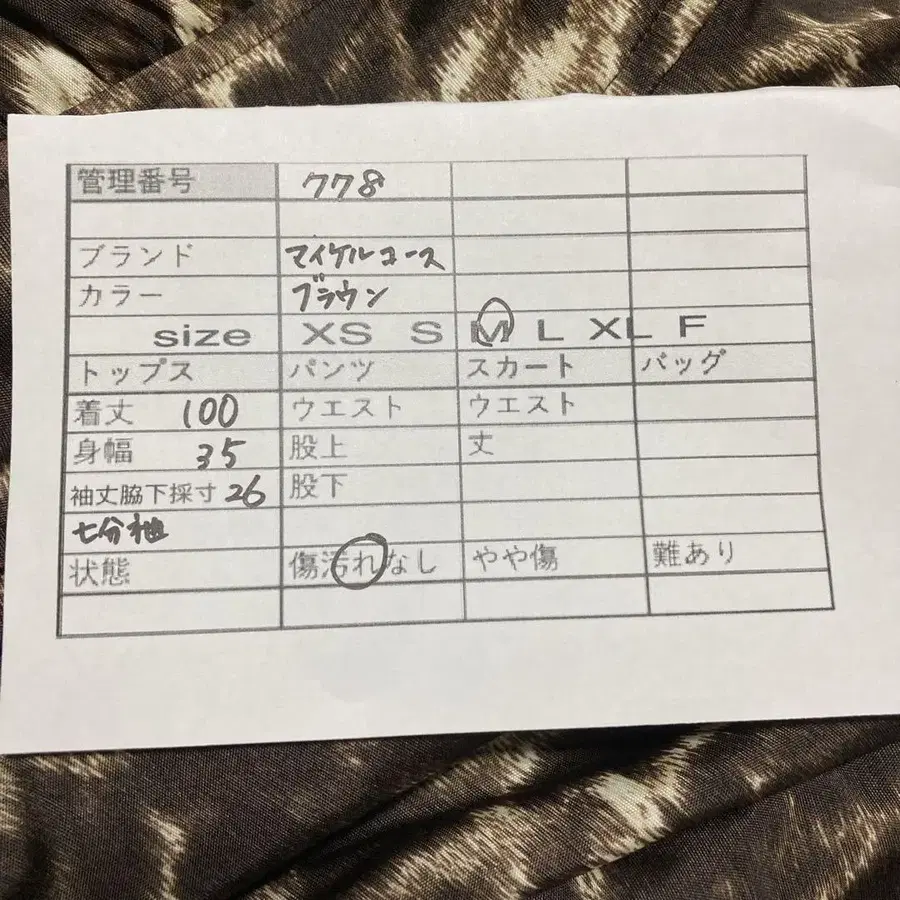 管理番号 778
ブランド マイケルコース
カラー ブラウン
size XS S M L XL F
トップス パンツ スカート バッグ
着丈 100 ウエスト ウエスト
身幅 35 股上 丈
袖丈脇下採寸 26 股下
七分袖
状態 傷汚れなし やや傷 難あり